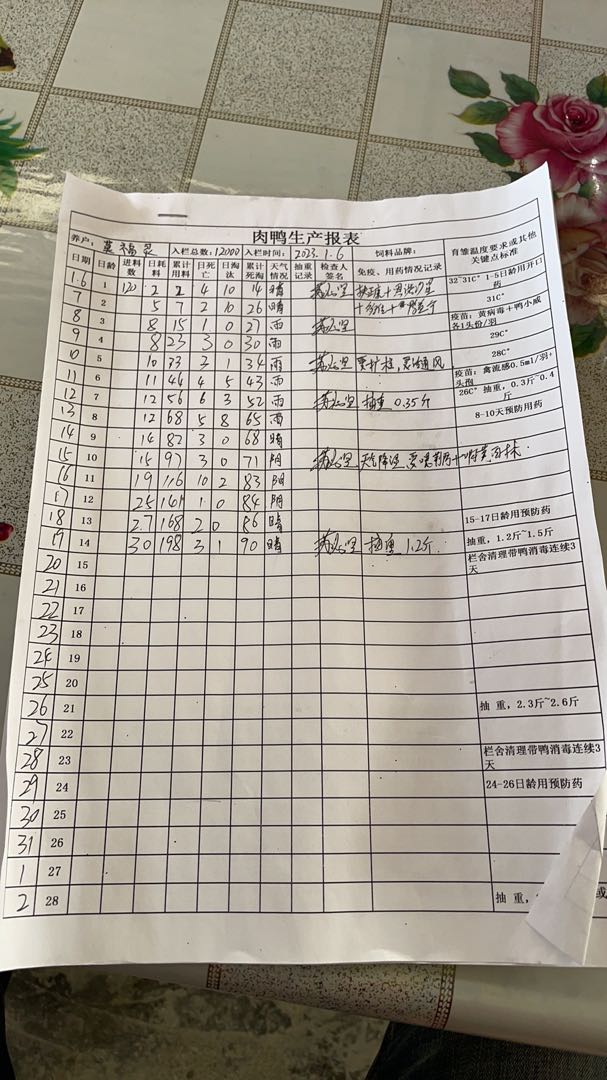 肉鸭生产报表
养户: 莫福灵 入栏总数: 12000 入栏时间: 2023.1.6 饲料品牌: 育雏温度要求或其他关键点标准
日期 日龄 进料数 日耗料 累计用料 日死亡 日淘汰 累计死淘 天气情况 抽重记录 检查人签名 免疫、用药情况记录
1.6 1 120 2 2 4 10 14 晴 32~31C° 1-5日龄用开口药
7 2 5 7 2 10 26 晴 31C°
8 3 8 15 1 0 27 雨 疫苗: 黄病毒+鸭小威各1头份/羽
9 4 8 23 3 0 30 雨 29C°
10 5 10 33 3 1 34 雨 28C°
11 6 11 44 4 5 43 雨 疫苗: 禽流感0.5ml/羽+头孢
12 7 12 56 6 3 52 雨 抽重 0.35斤 26C° 抽重, 0.3斤~0.4斤
13 8 12 68 5 8 65 雨 8-10天预防用药
14 9 14 82 3 0 68 晴
15 10 15 97 3 0 71 阴 天气降温
16 11 19 116 10 2 83 阴
17 12 25 141 1 0 84 阴
18 13 2.7 168 2 0 86 晴 15-17日龄用预防药
19 14 30 198 3 1 90 晴 抽重 1.2斤. 抽重, 1.2斤~1.5斤
20 15 栏舍清理带鸭消毒连续3天
21 16
22 17
23 18
24 19
25 20
26 21 抽 重, 2.3斤~2.6斤
27 22
28 23 栏舍清理带鸭消毒连续3天
29 24 24-26日龄用预防药
30 25
31 26
1 27
2 28 抽 重,